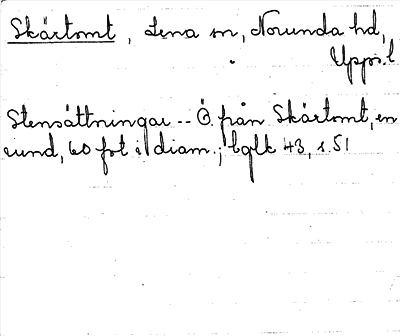 Skärtomt, Lena sn, Norunda hd,
Upps. l
Stensättningar -- Ö. från Skärtomt, en
rund, 60 fot i diam.; bqlk 43, s. 51